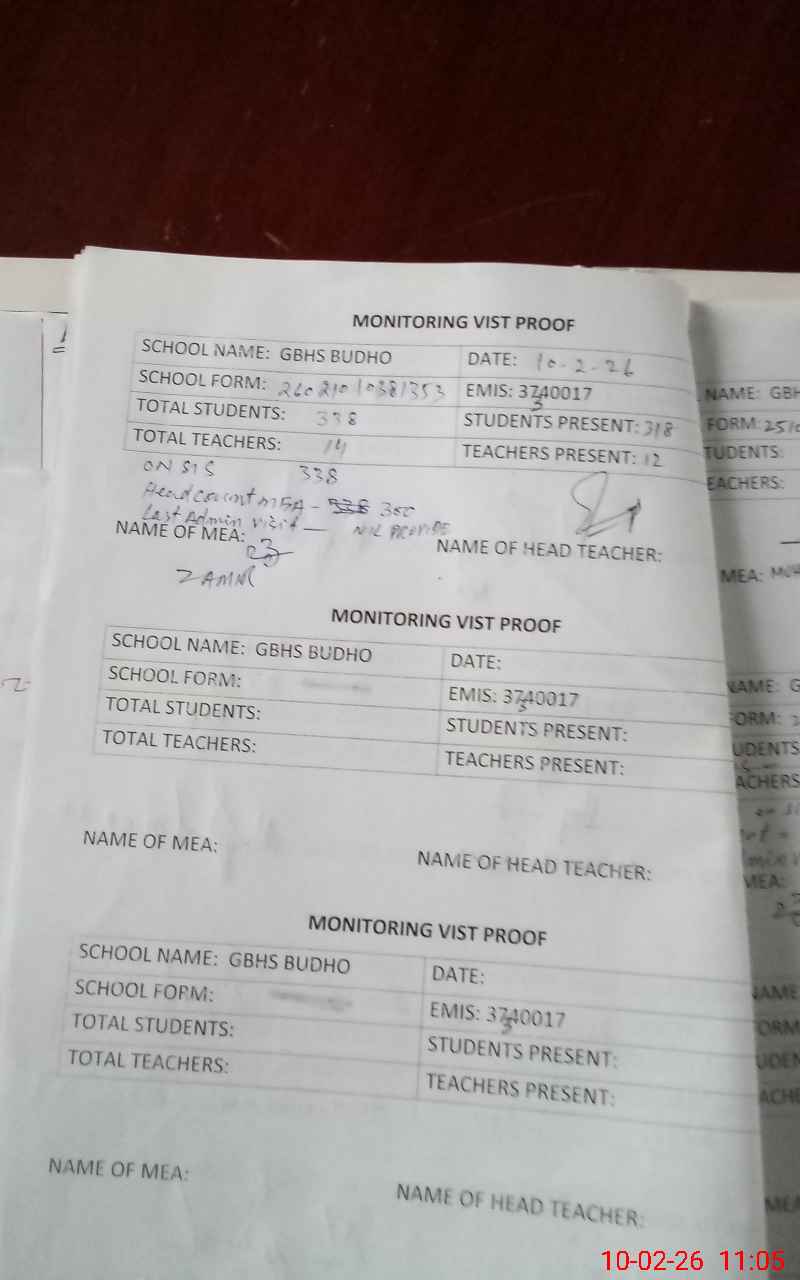 MONITORING VIST PROOF
SCHOOL NAME: GBHS BUDHO DATE: 10-2-26
SCHOOL FORM: 26021010381353 EMIS: 3740017
3
TOTAL STUDENTS: 338 STUDENTS PRESENT: 318
TOTAL TEACHERS: 14 TEACHERS PRESENT: 12
ON SIS 338
Head count MEA - 300
Last Admin visit —
NAME OF MEA: NAME OF HEAD TEACHER:
MONITORING VIST PROOF
SCHOOL NAME: GBHS BUDHO DATE:
SCHOOL FORM: EMIS: 3740017
3
TOTAL STUDENTS: STUDENTS PRESENT:
TOTAL TEACHERS: TEACHERS PRESENT:
NAME OF MEA: NAME OF HEAD TEACHER:
MONITORING VIST PROOF
SCHOOL NAME: GBHS BUDHO DATE:
SCHOOL FORM: EMIS: 3740017
3
TOTAL STUDENTS: STUDENTS PRESENT:
TOTAL TEACHERS: TEACHERS PRESENT:
NAME OF MEA: NAME OF HEAD TEACHER:
NAME: GBH
FORM:
TUDENTS:
EACHERS:
MEA:
NAME: G
FORM:
UDENTS
ACHERS
MEA:
NAME
ORM
UDEN
ACHE
MEA
10-02-26 11:05